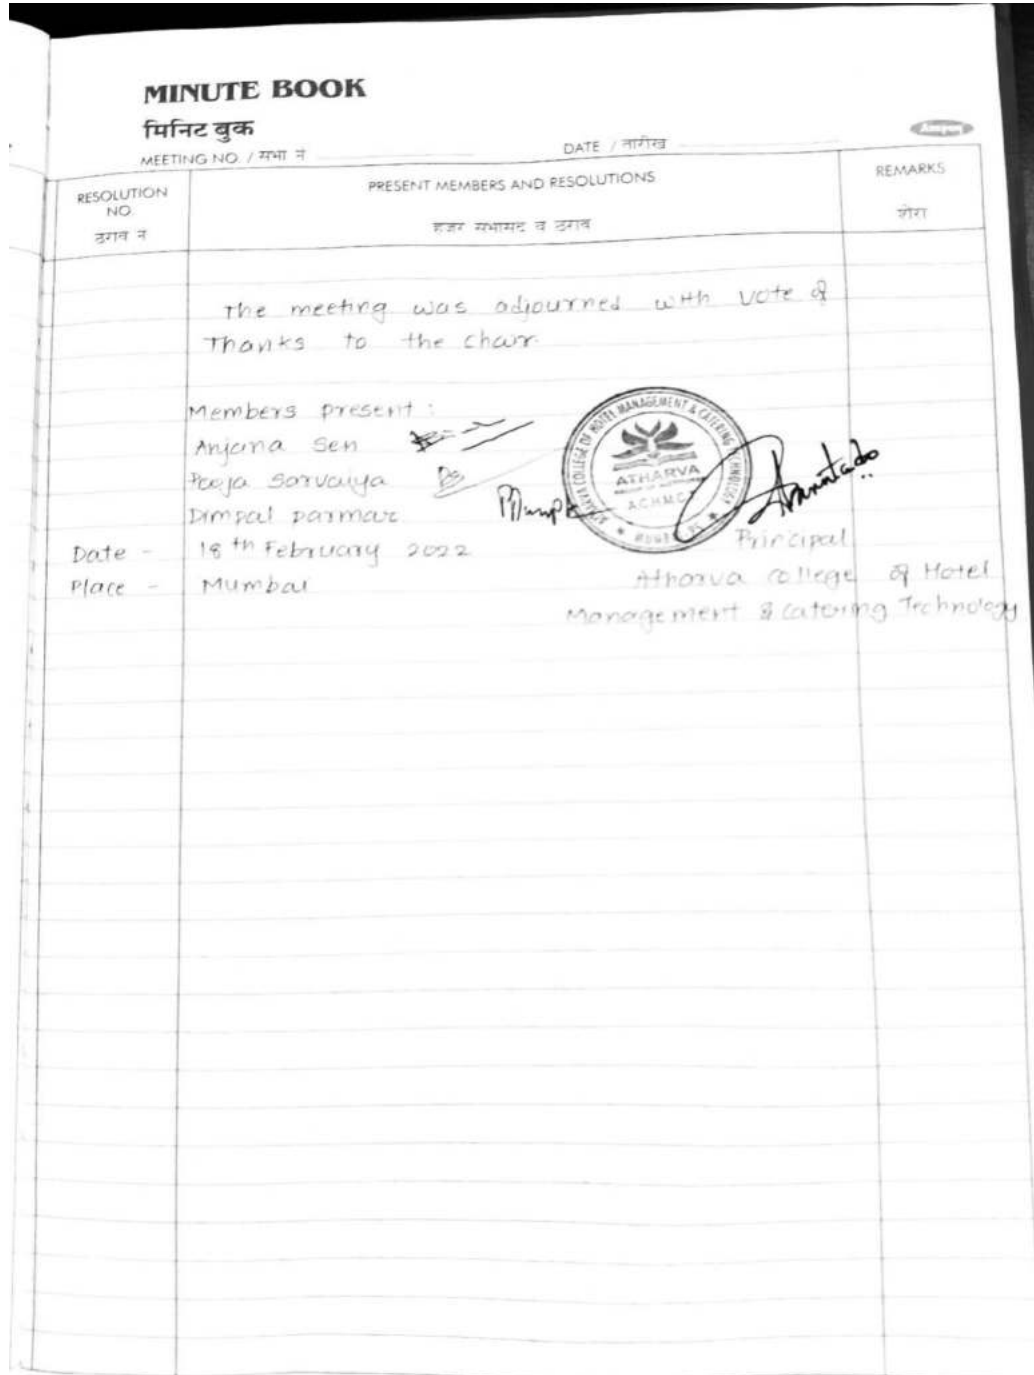 MINUTE BOOK
मिनिट बुक
MEETING NO. / सभा नं
DATE / तारीख
RESOLUTION NO.
ठराव नं
PRESENT MEMBERS AND RESOLUTIONS
हजर सभासद व ठराव
REMARKS
शेरा
The meeting was adjourned with vote of
Thanks to the chair.
Members present :
Anjana Sen
Pooja Sarvaiya
Dimpal parmar
Date - 18th February 2022
Place - Mumbai
ATHARVA COLLEGE OF HOTEL MANAGEMENT & CATERING TECHNOLOGY
ATHARVA
Principal
Atharva college of Hotel
Management & Catering Technology